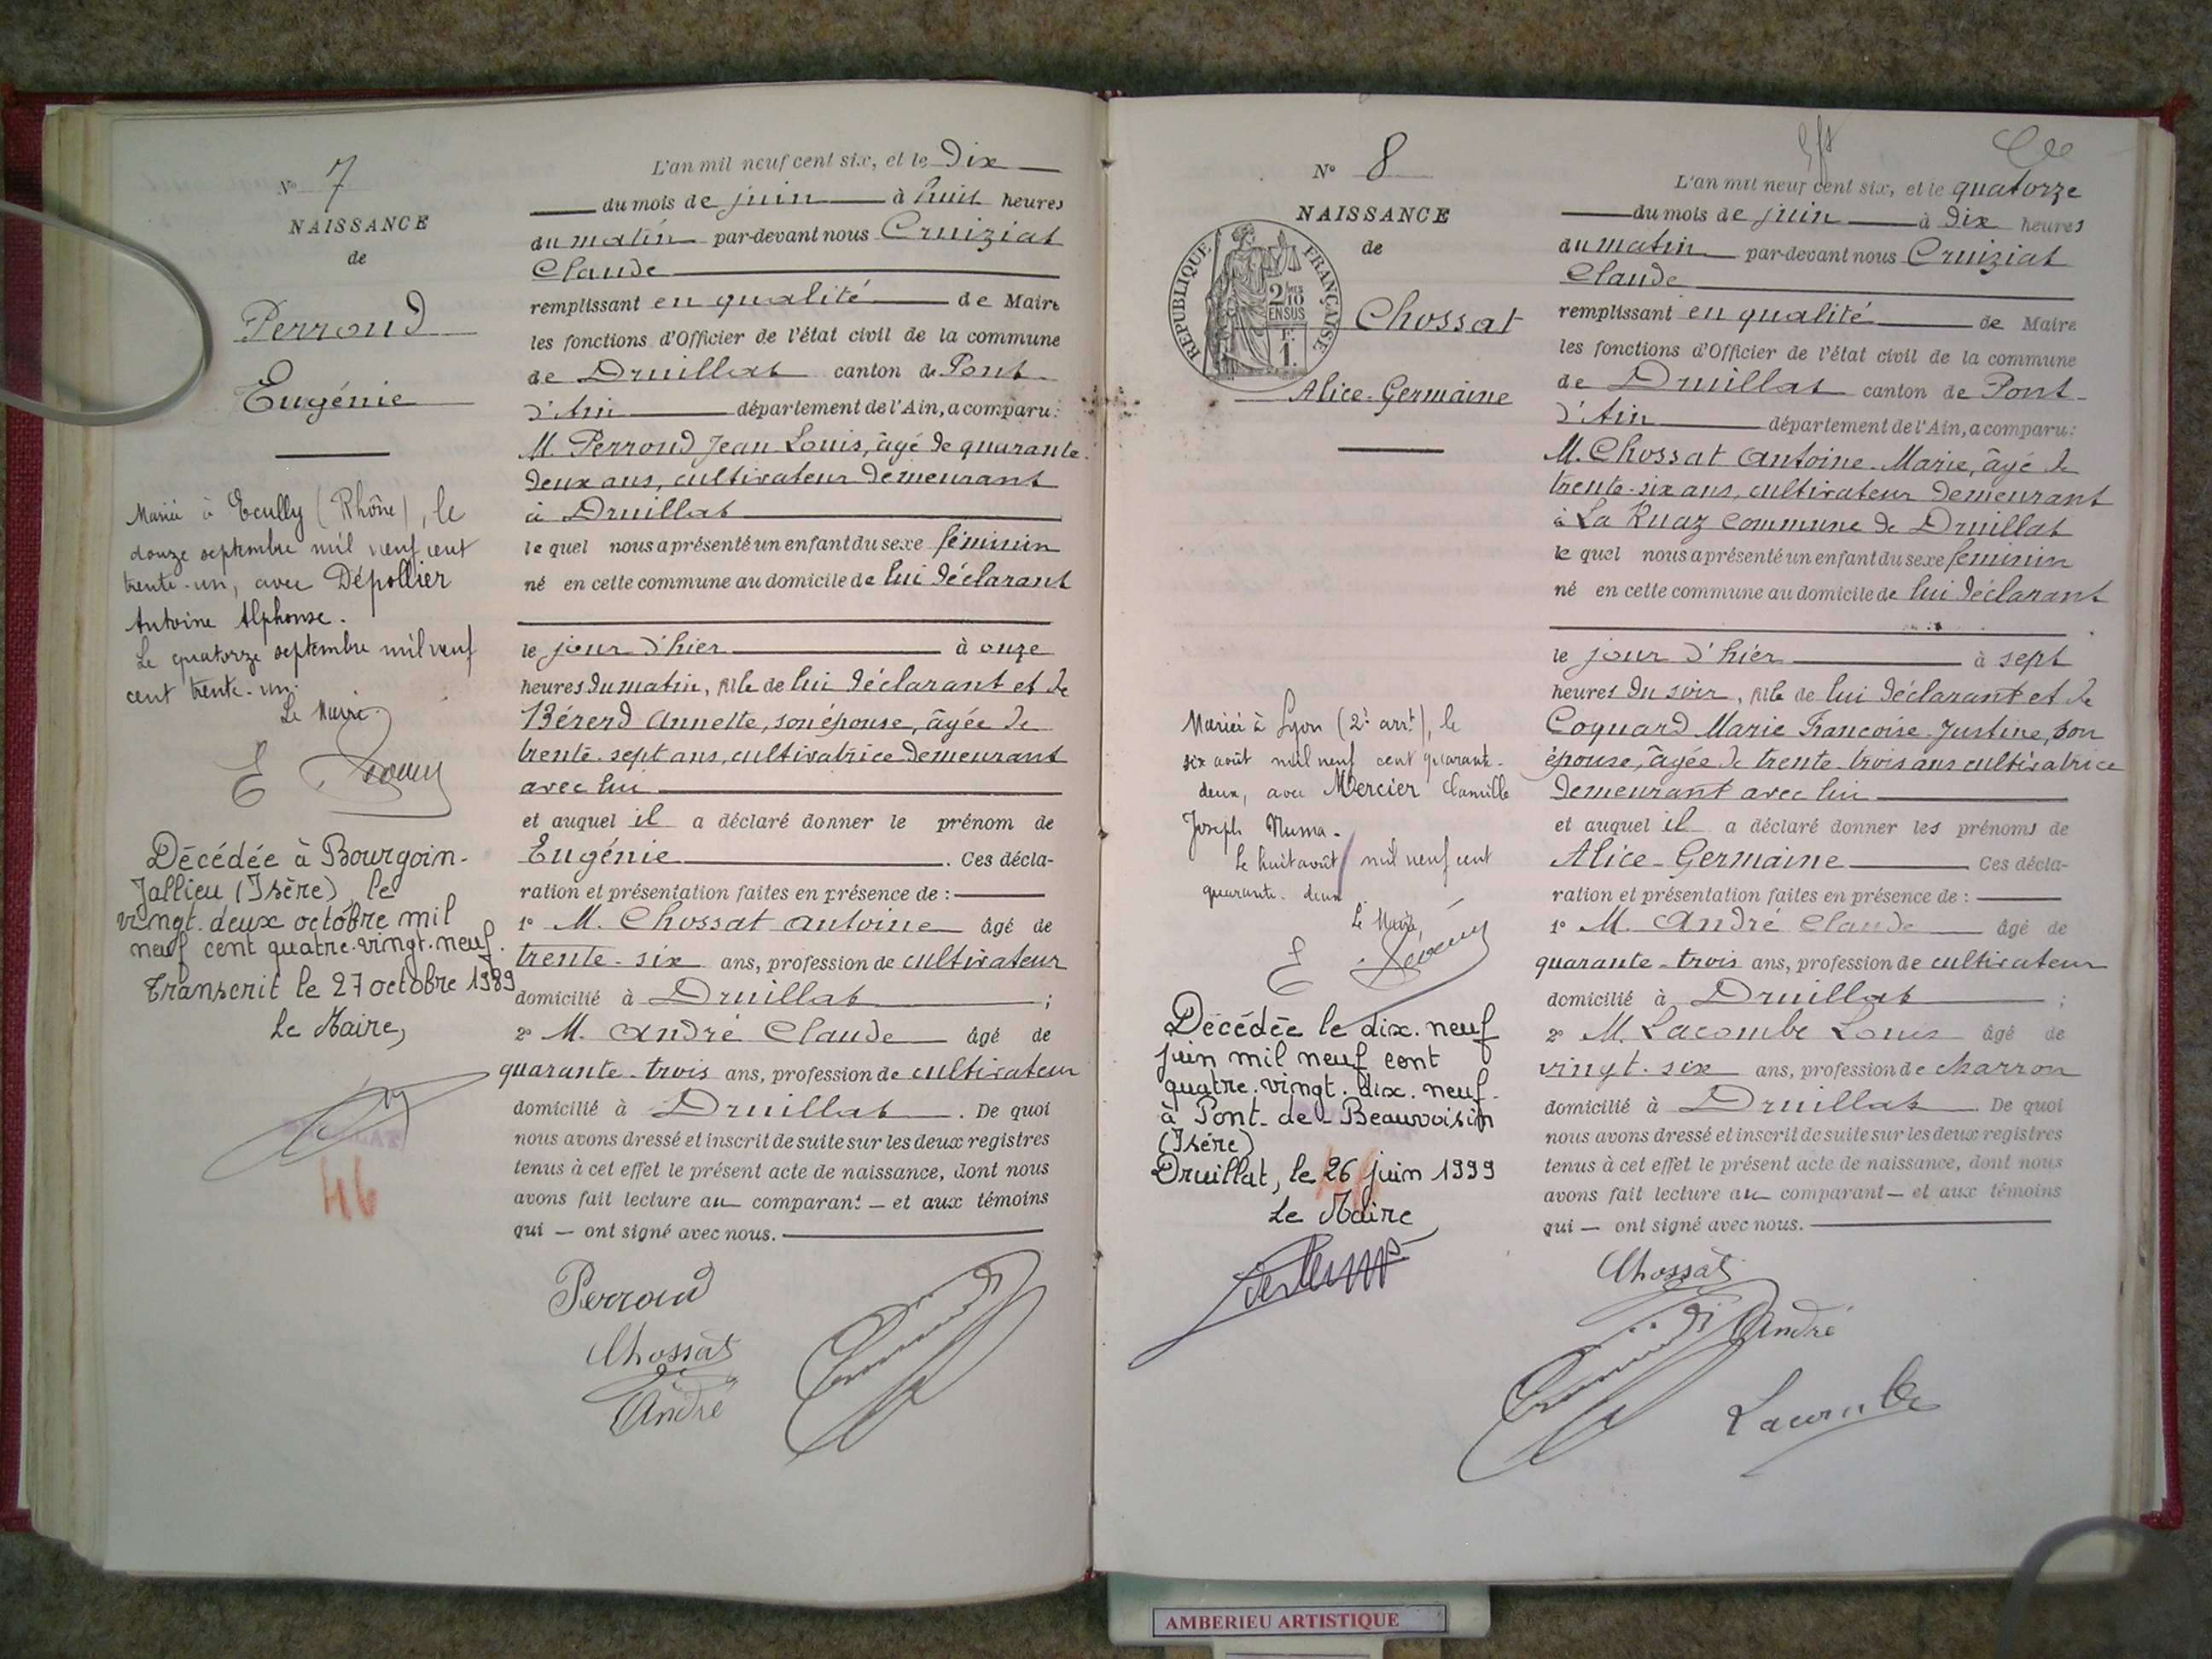 N° 7
NAISSANCE
de
Perroud
Eugénie
Mariée à Ecully (Rhône), le
douze septembre mil neuf cent
trente-un, avec Dépollier
Antoine Alphonse.
Le quatorze septembre mil neuf
cent trente-un.
Le Maire
E
Décédée à Bourgoin-
Jallieu (Isère) le
vingt-deux octobre mil
neuf cent quatre-vingt-neuf.
Transcrit le 27 octobre 1989
Le Maire,
46
L'an mil neuf cent six, et le Dix
du mois de juin à huit heures
du matin par-devant nous Cruiziat
Claude
remplissant en qualité de Maire
les fonctions d'Officier de l'état civil de la commune
de Druillat canton de Pont-
d'Ain département de l'Ain, a comparu:
M. Perroud Jean-Louis, âgé de quarante-
deux ans, cultivateur demeurant
à Druillat
le quel nous a présenté un enfant du sexe féminin
né en cette commune au domicile de lui déclarant
le jour d'hier à onze
heures du matin, fille de lui déclarant et de
Bérerd Annette, son épouse, âgée de
trente-sept ans, cultivatrice demeurant
avec lui
et auquel il a déclaré donner le prénom de
Eugénie. Ces décla-
ration et présentation faites en présence de :
1° M. Chossat Antoine âgé de
trente-six ans, profession de cultivateur
domicilié à Druillat ;
2° M. André Claude âgé de
quarante-trois ans, profession de cultivateur
domicilié à Druillat. De quoi
nous avons dressé et inscrit de suite sur les deux registres
tenus à cet effet le présent acte de naissance, dont nous
avons fait lecture au comparant — et aux témoins
qui — ont signé avec nous.
Perroud
Chossat
André
N° 8
NAISSANCE
de
REPUBLIQUE FRANÇAISE
2/10
EN SUS
1.
Chossat
Alice-Germaine
Mariée à Lyon (2e arrt), le
six août mil neuf cent quarante-
deux, avec Mercier Camille
Joseph Numa.
Le huit août mil neuf cent
quarante-deux
Le Maire,
E
Décédée le dix-neuf
juin mil neuf cent
quatre-vingt-dix-neuf-
à Pont-de-Beauvoisin
(Isère)
Druillat, le 26 juin 1999
Le Maire
L'an mil neuf cent six, et le quatorze
du mois de juin à Dix heures
du matin par-devant nous Cruiziat
Claude
remplissant en qualité de Maire
les fonctions d'Officier de l'état civil de la commune
de Druillat canton de Pont-
d'Ain département de l'Ain, a comparu:
M. Chossat Antoine-Marie, âgé de
trente-six ans, cultivateur demeurant
à La Ruaz commune de Druillat
le quel nous a présenté un enfant du sexe féminin
né en cette commune au domicile de lui déclarant
le jour d'hier à sept
heures du soir, fille de lui déclarant et de
Coquard Marie Françoise-Justine, son
épouse, âgée de trente-trois ans cultivatrice
demeurant avec lui
et auquel il a déclaré donner les prénoms de
Alice-Germaine Ces décla-
ration et présentation faites en présence de :
1° M. André Claude âgé de
quarante-trois ans, profession de cultivateur
domicilié à Druillat ;
2° M. Lacombe Louis âgé de
vingt-six ans, profession de charron
domicilié à Druillat. De quoi
nous avons dressé et inscrit de suite sur les deux registres
tenus à cet effet le présent acte de naissance, dont nous
avons fait lecture au comparant — et aux témoins
qui — ont signé avec nous.
Chossat
André
Lacombe
AMBERIEU ARTISTIQUE